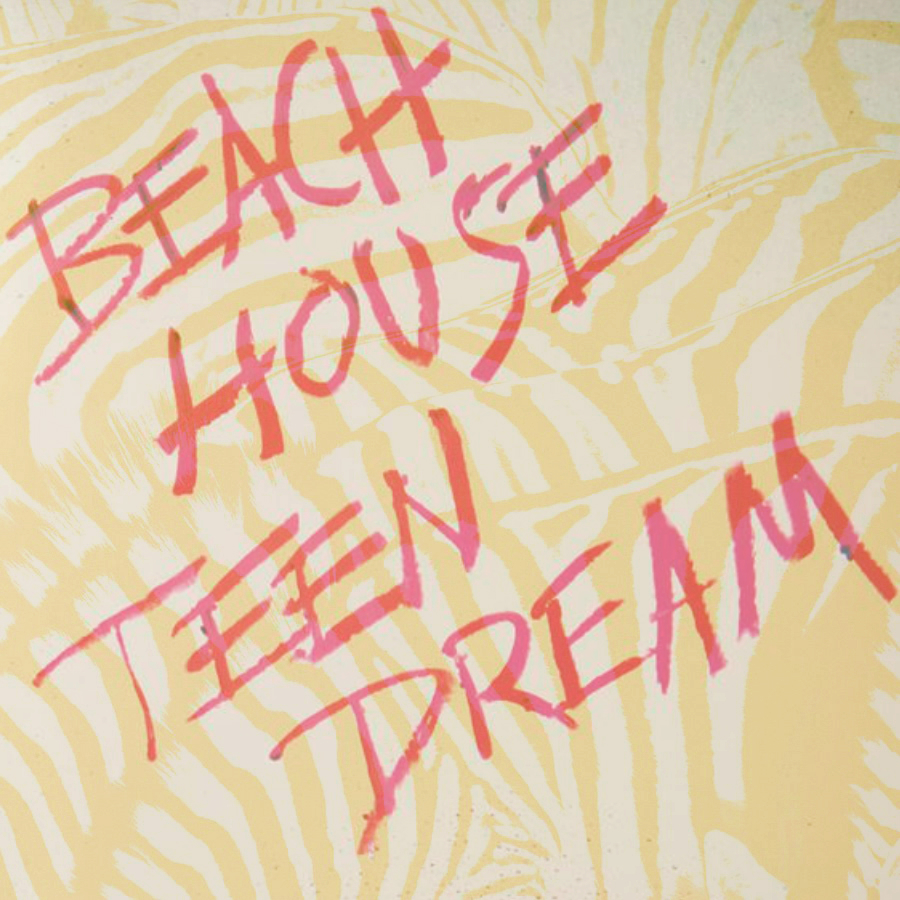 BEACH
HOUSE
TEEN
DREAM